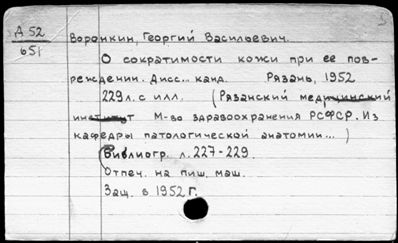 Д 52
651
Воронкин, Георгий Васильевич.
О сократимости кожи при ее пов-
реждении. Дисс... канд. Рязань, 1952
229л. с илл. (Рязанский медицинский
институт М-во здравоохранения РСФСР. Из
кафедры патологической анатомии...)
(Библиогр. л. 227-229.
Отпеч. на пиш. маш.
Защ. в 1952 г.